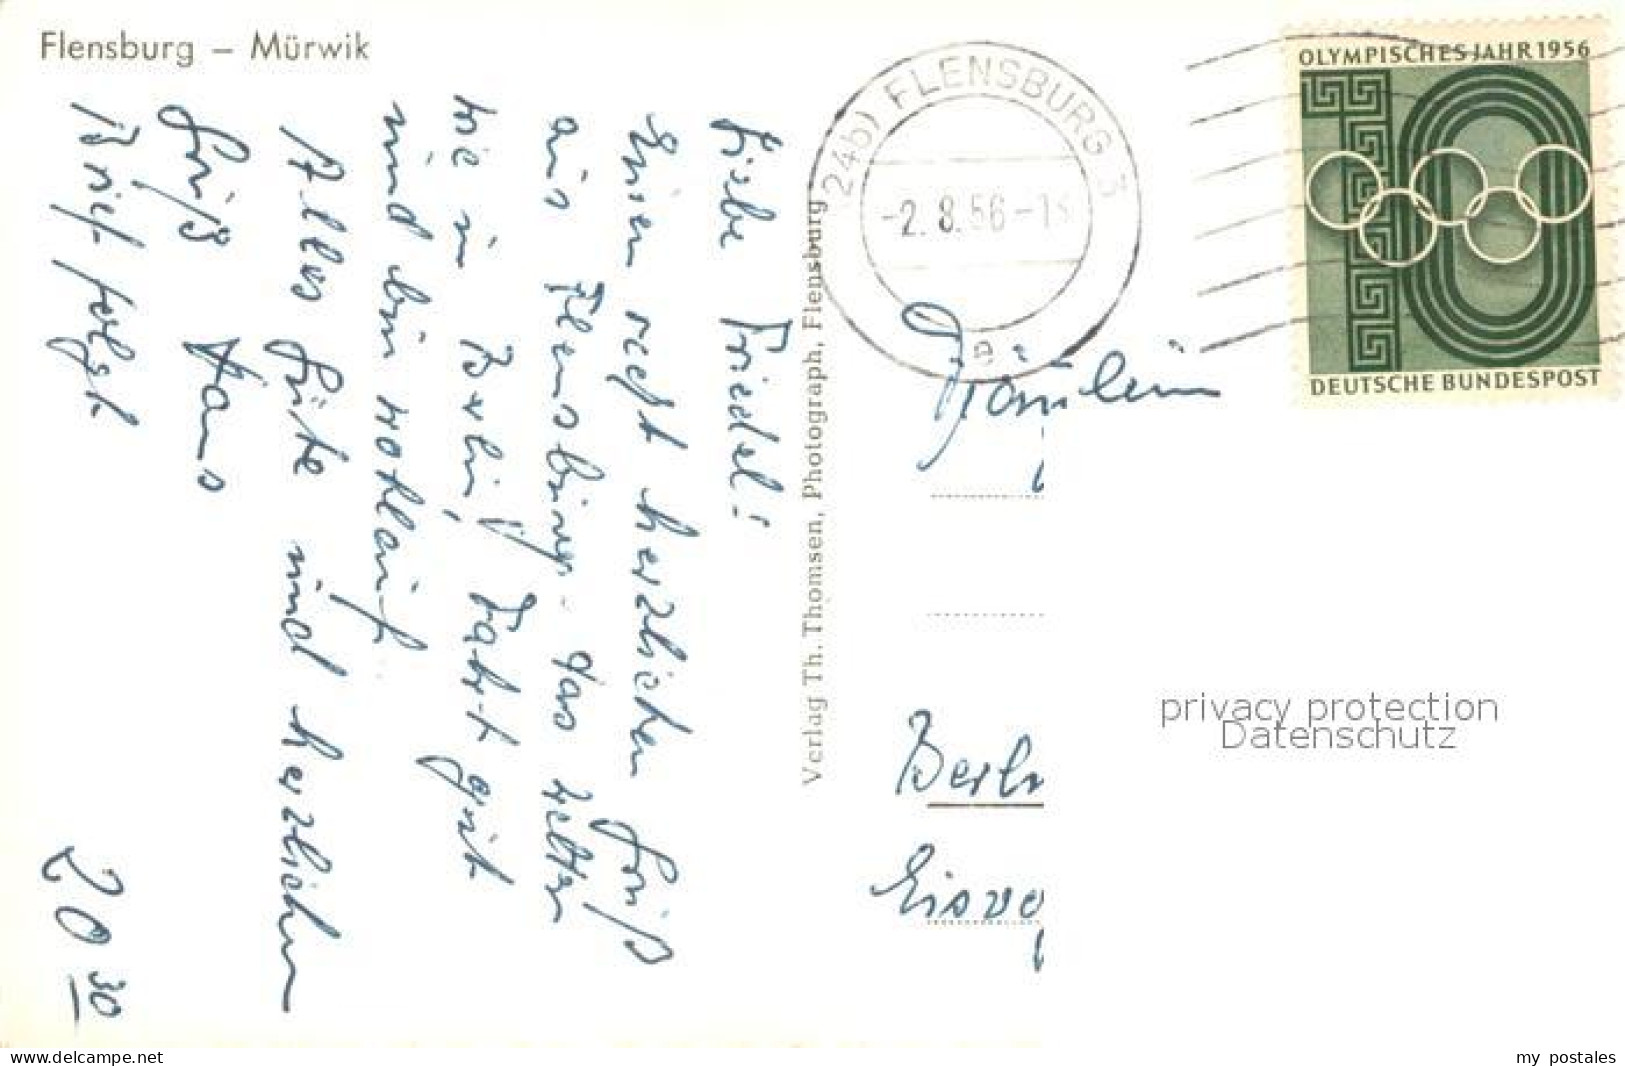 Flensburg – Mürwik
Liebe Friedel!
Einen recht herzlichen Gruß
aus Flensburg. Das Wetter
wie in Berlin, Fahrt gut
und bin wohlauf.
Alles Gute und herzlichen
Gruß Hans
Brief folgt
20 30
Verlag Th. Thomsen, Photograph, Flensburg
(24b) FLENSBURG 3
-2. 8. 56 -1
OLYMPISCHES JAHR 1956
DEUTSCHE BUNDESPOST
Fräulein
Berli
Eisvo
privacy protection
Datenschutz
www.delcampe.net
my_postales